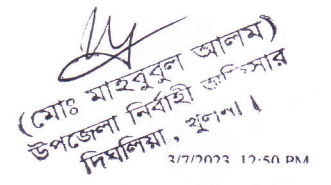 (মোঃ মাহবুবুল আলম)
উপজেলা নির্বাহী অফিসার
দিঘলিয়া, খুলনা।
3/7/2023 12:50 PM